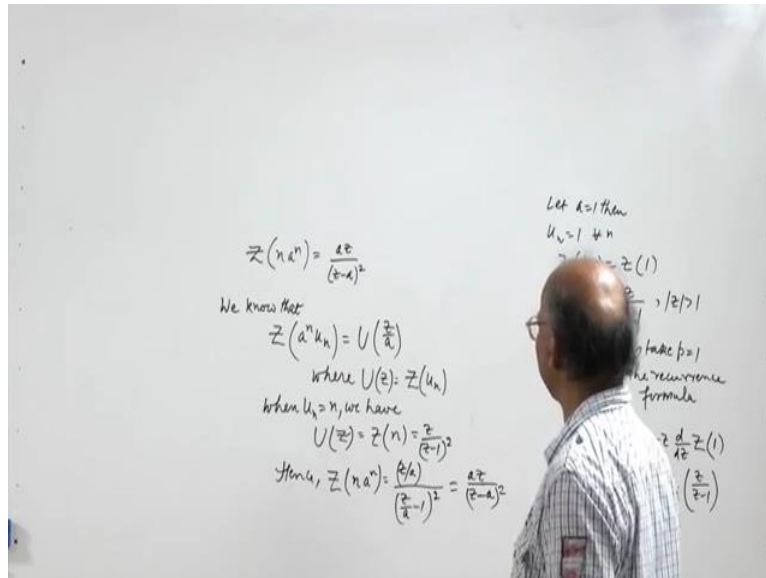 Z(na^n) = az/(z-a)^2
We know that
Z(a^n u_n) = U(z/a)
where U(z) = Z(u_n)
when u_n = n, we have
U(z) = Z(n) = z/(z-1)^2
Hence, Z(na^n) = (z/a)/(z/a - 1)^2 = az/(z-a)^2
Let a=1 then
u_n = 1 ∀ n
= Z(1)
, |z|>1
take p=1
the recurrence
formula
z d/dz Z(1)
(z/(z-1))